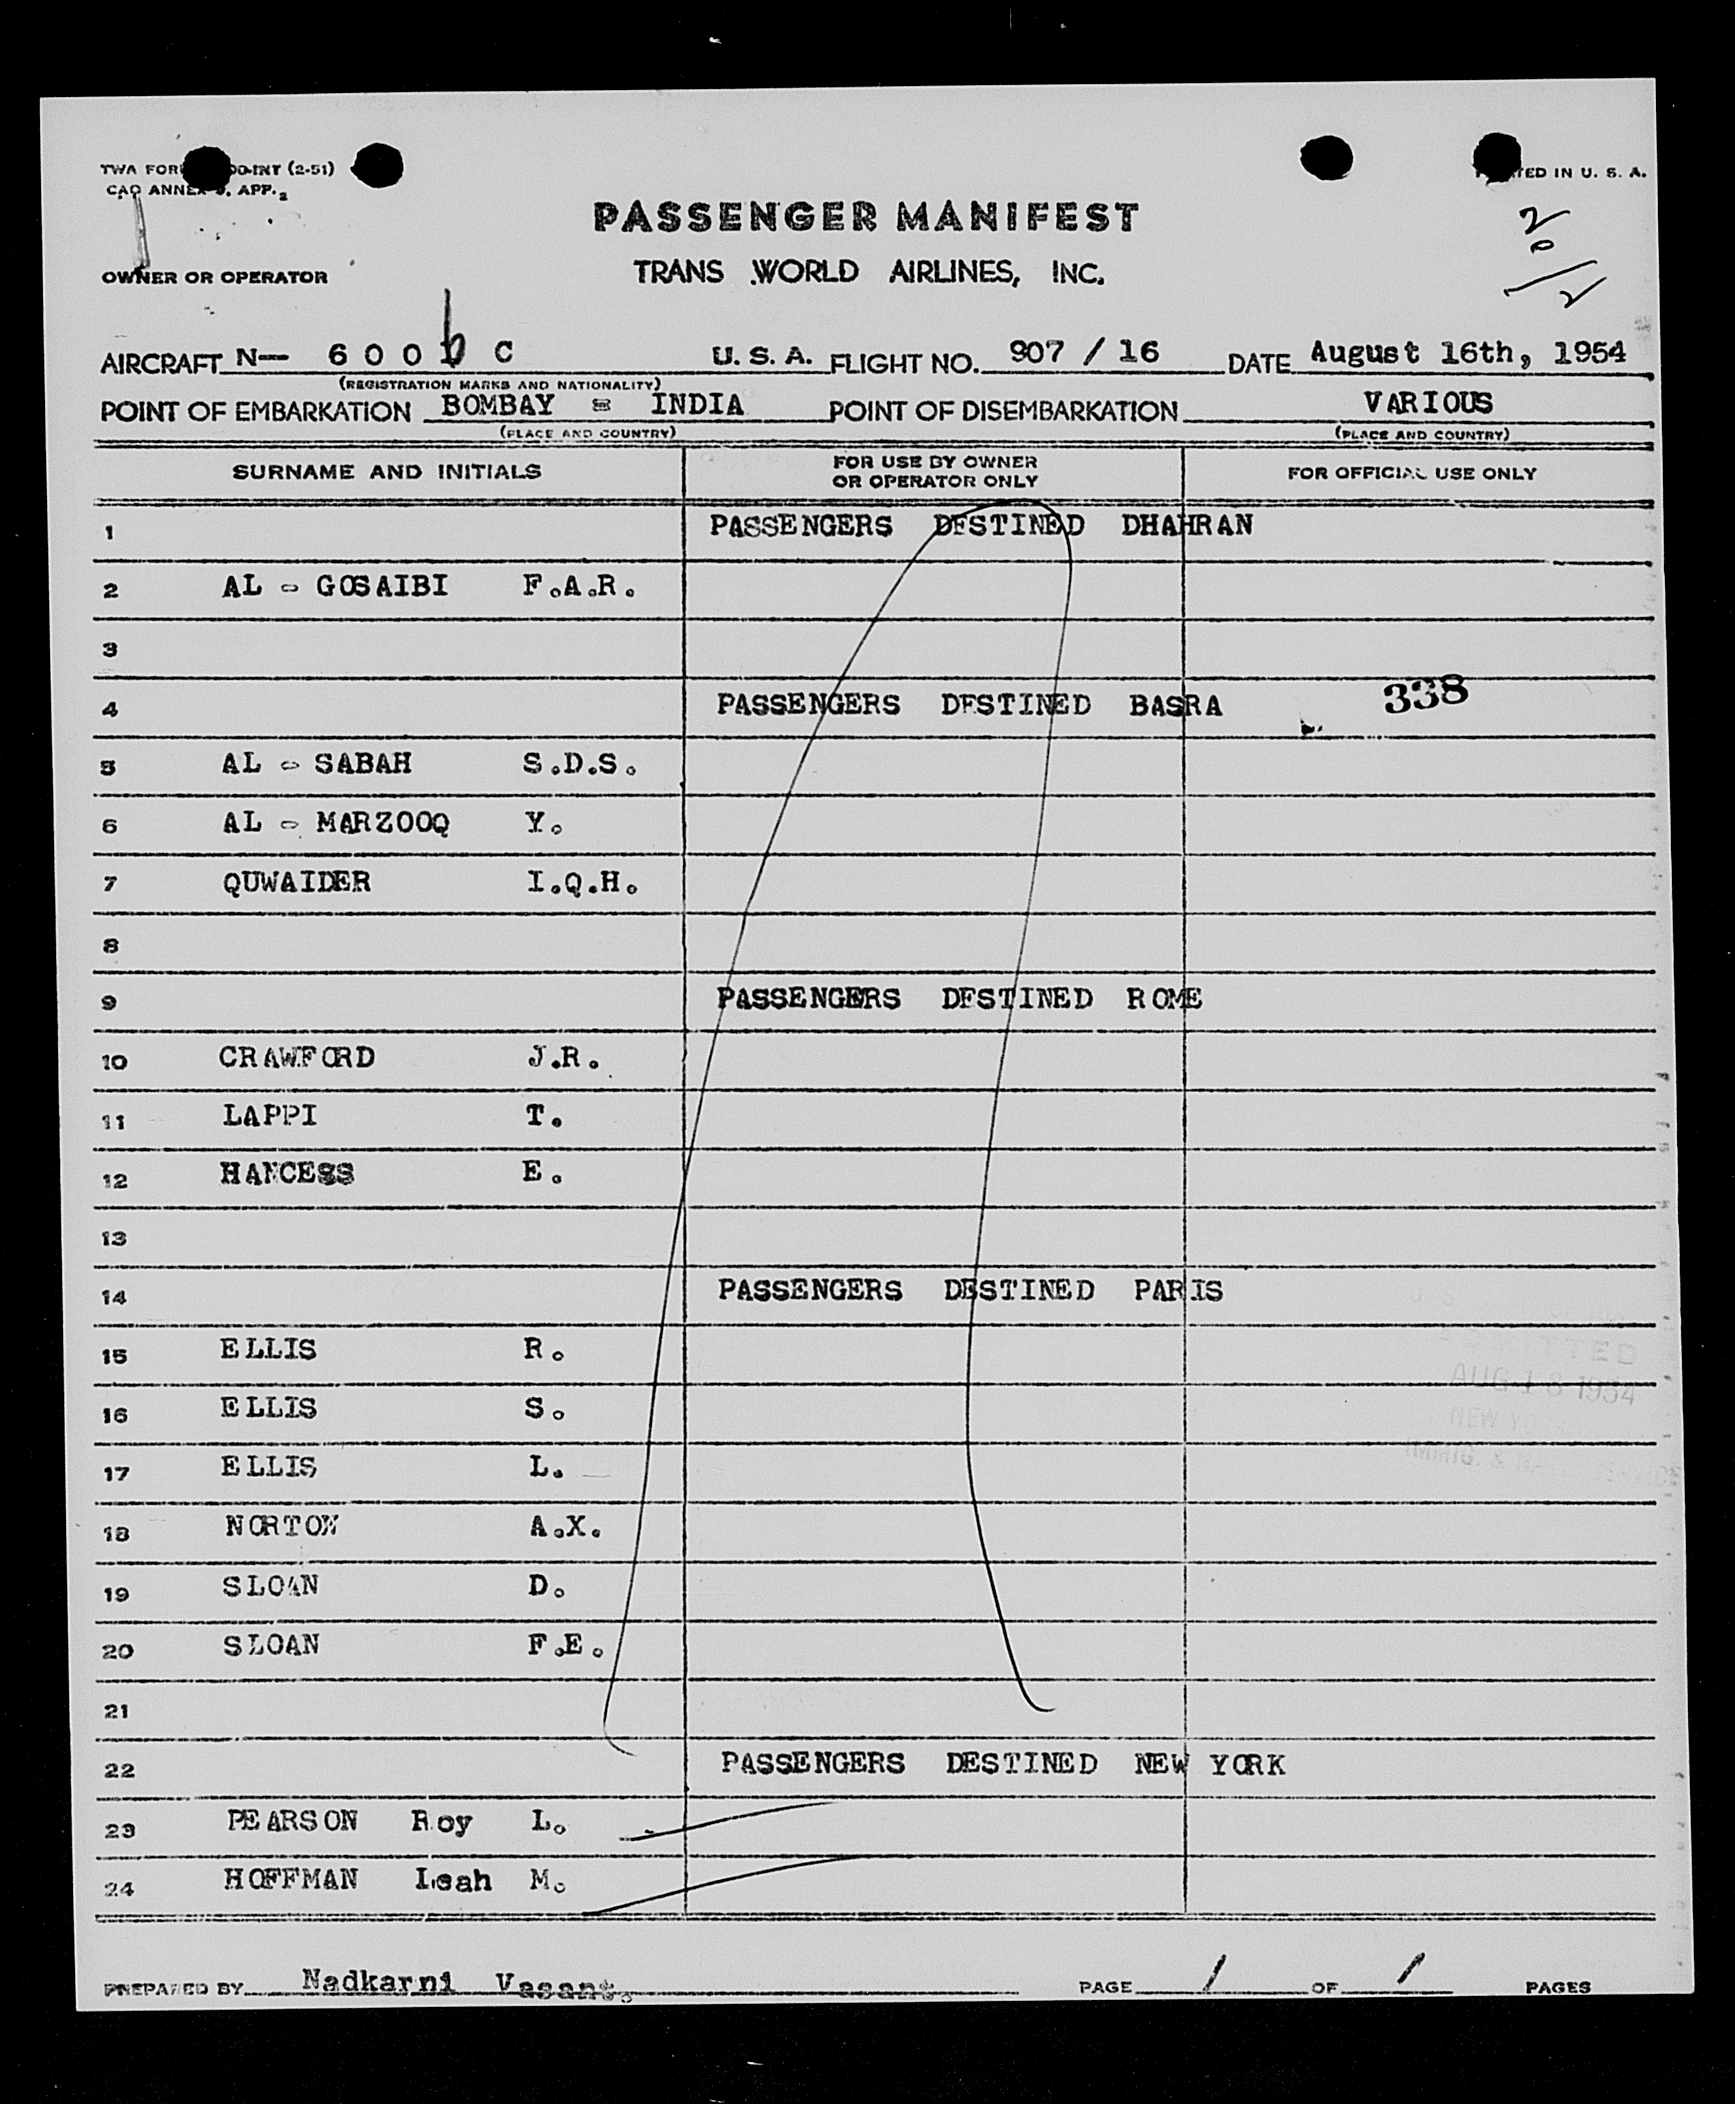 TWA FOR INT (2-51)
CAO ANNEX 9, APP. 2
TED IN U. S. A.
PASSENGER MANIFEST
20/2
OWNER OR OPERATOR
TRANS WORLD AIRLINES, INC.
AIRCRAFT N— 600 6 C U. S. A. FLIGHT NO. 907 / 16 DATE August 16th, 1954
(REGISTRATION MARKS AND NATIONALITY)
POINT OF EMBARKATION BOMBAY = INDIA POINT OF DISEMBARKATION VARIOUS
(PLACE AND COUNTRY) (PLACE AND COUNTRY)
SURNAME AND INITIALS FOR USE BY OWNER OR OPERATOR ONLY FOR OFFICIAL USE ONLY
1 PASSENGERS DESTINED DHAHRAN
2 AL - GOSAIBI F.A.R.
3
4 PASSENGERS DESTINED BASRA 338
5 AL - SABAH S.D.S.
6 AL - MARZOOQ Y.
7 QUWAIDER I.Q.H.
8
9 PASSENGERS DESTINED ROME
10 CRAWFORD J.R.
11 LAPPI T.
12 HANCESS E.
13
14 PASSENGERS DESTINED PARIS
15 ELLIS R.
16 ELLIS S.
17 ELLIS L.
18 NORTON A.X.
19 SLOAN D.
20 SLOAN F.E.
21
22 PASSENGERS DESTINED NEW YORK
23 PEARSON Roy L.
24 HOFFMAN Leah M.
AUG 18 1954
NEW YO
IMMIG. &
PREPARED BY Nadkarni Vasant. PAGE 1 OF 1 PAGES